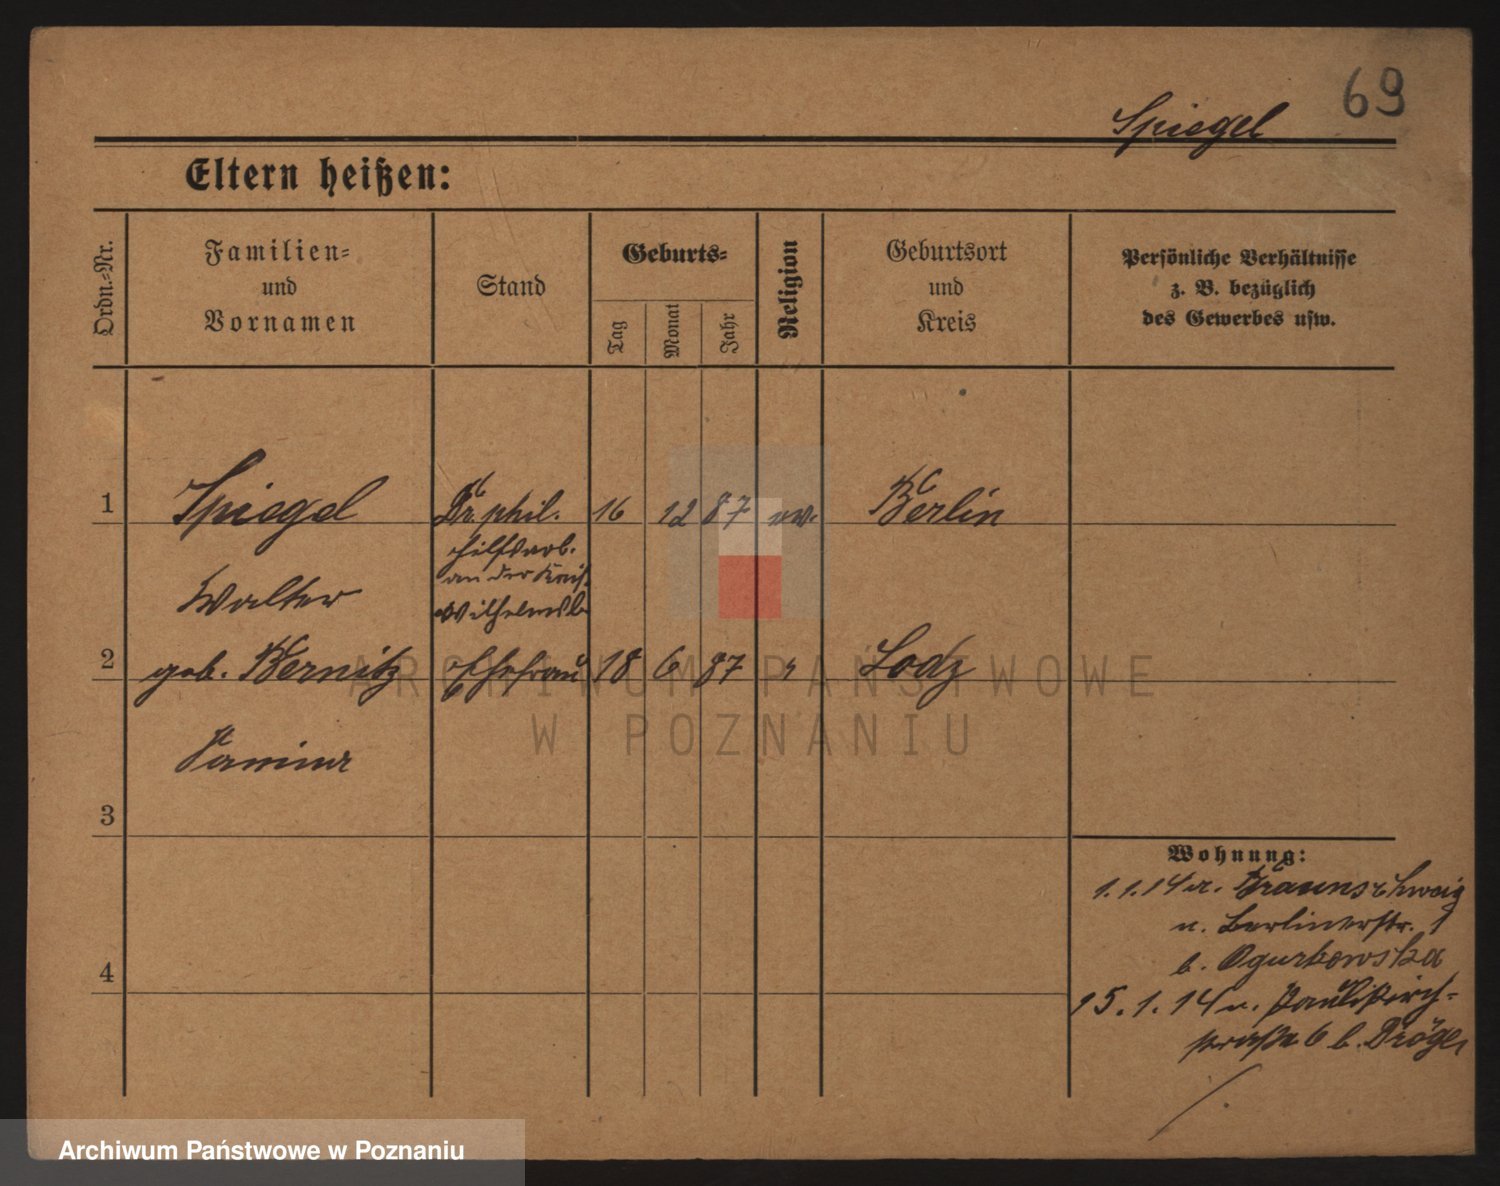 69
Spiegel
Eltern heißen:
Ordn.-Nr.
Familien-
und
Vornamen
Stand
Geburts-
Tag
Monat
Jahr
Religion
Geburtsort
und
Kreis
Persönliche Verhältnisse
z. B. bezüglich
des Gewerbes usw.
1 Spiegel Dr. phil. 16 12 87 ev. Berlin
Hilfsarb.
an der Kais.
Walter Wilhelmsb.
2 geb. Bernitz Ehefrau 18 6 87 " Lodz
3
4
Wohnung:
1.1.14 a. Braunschweig
n. Berlinerstr. 1
b. Ogurkowska
15.1.14 n. Paulikirch-
straße 6 b. Dröge
ARCHIWUM PAŃSTWOWE
W POZNANIU
Archiwum Państwowe w Poznaniu